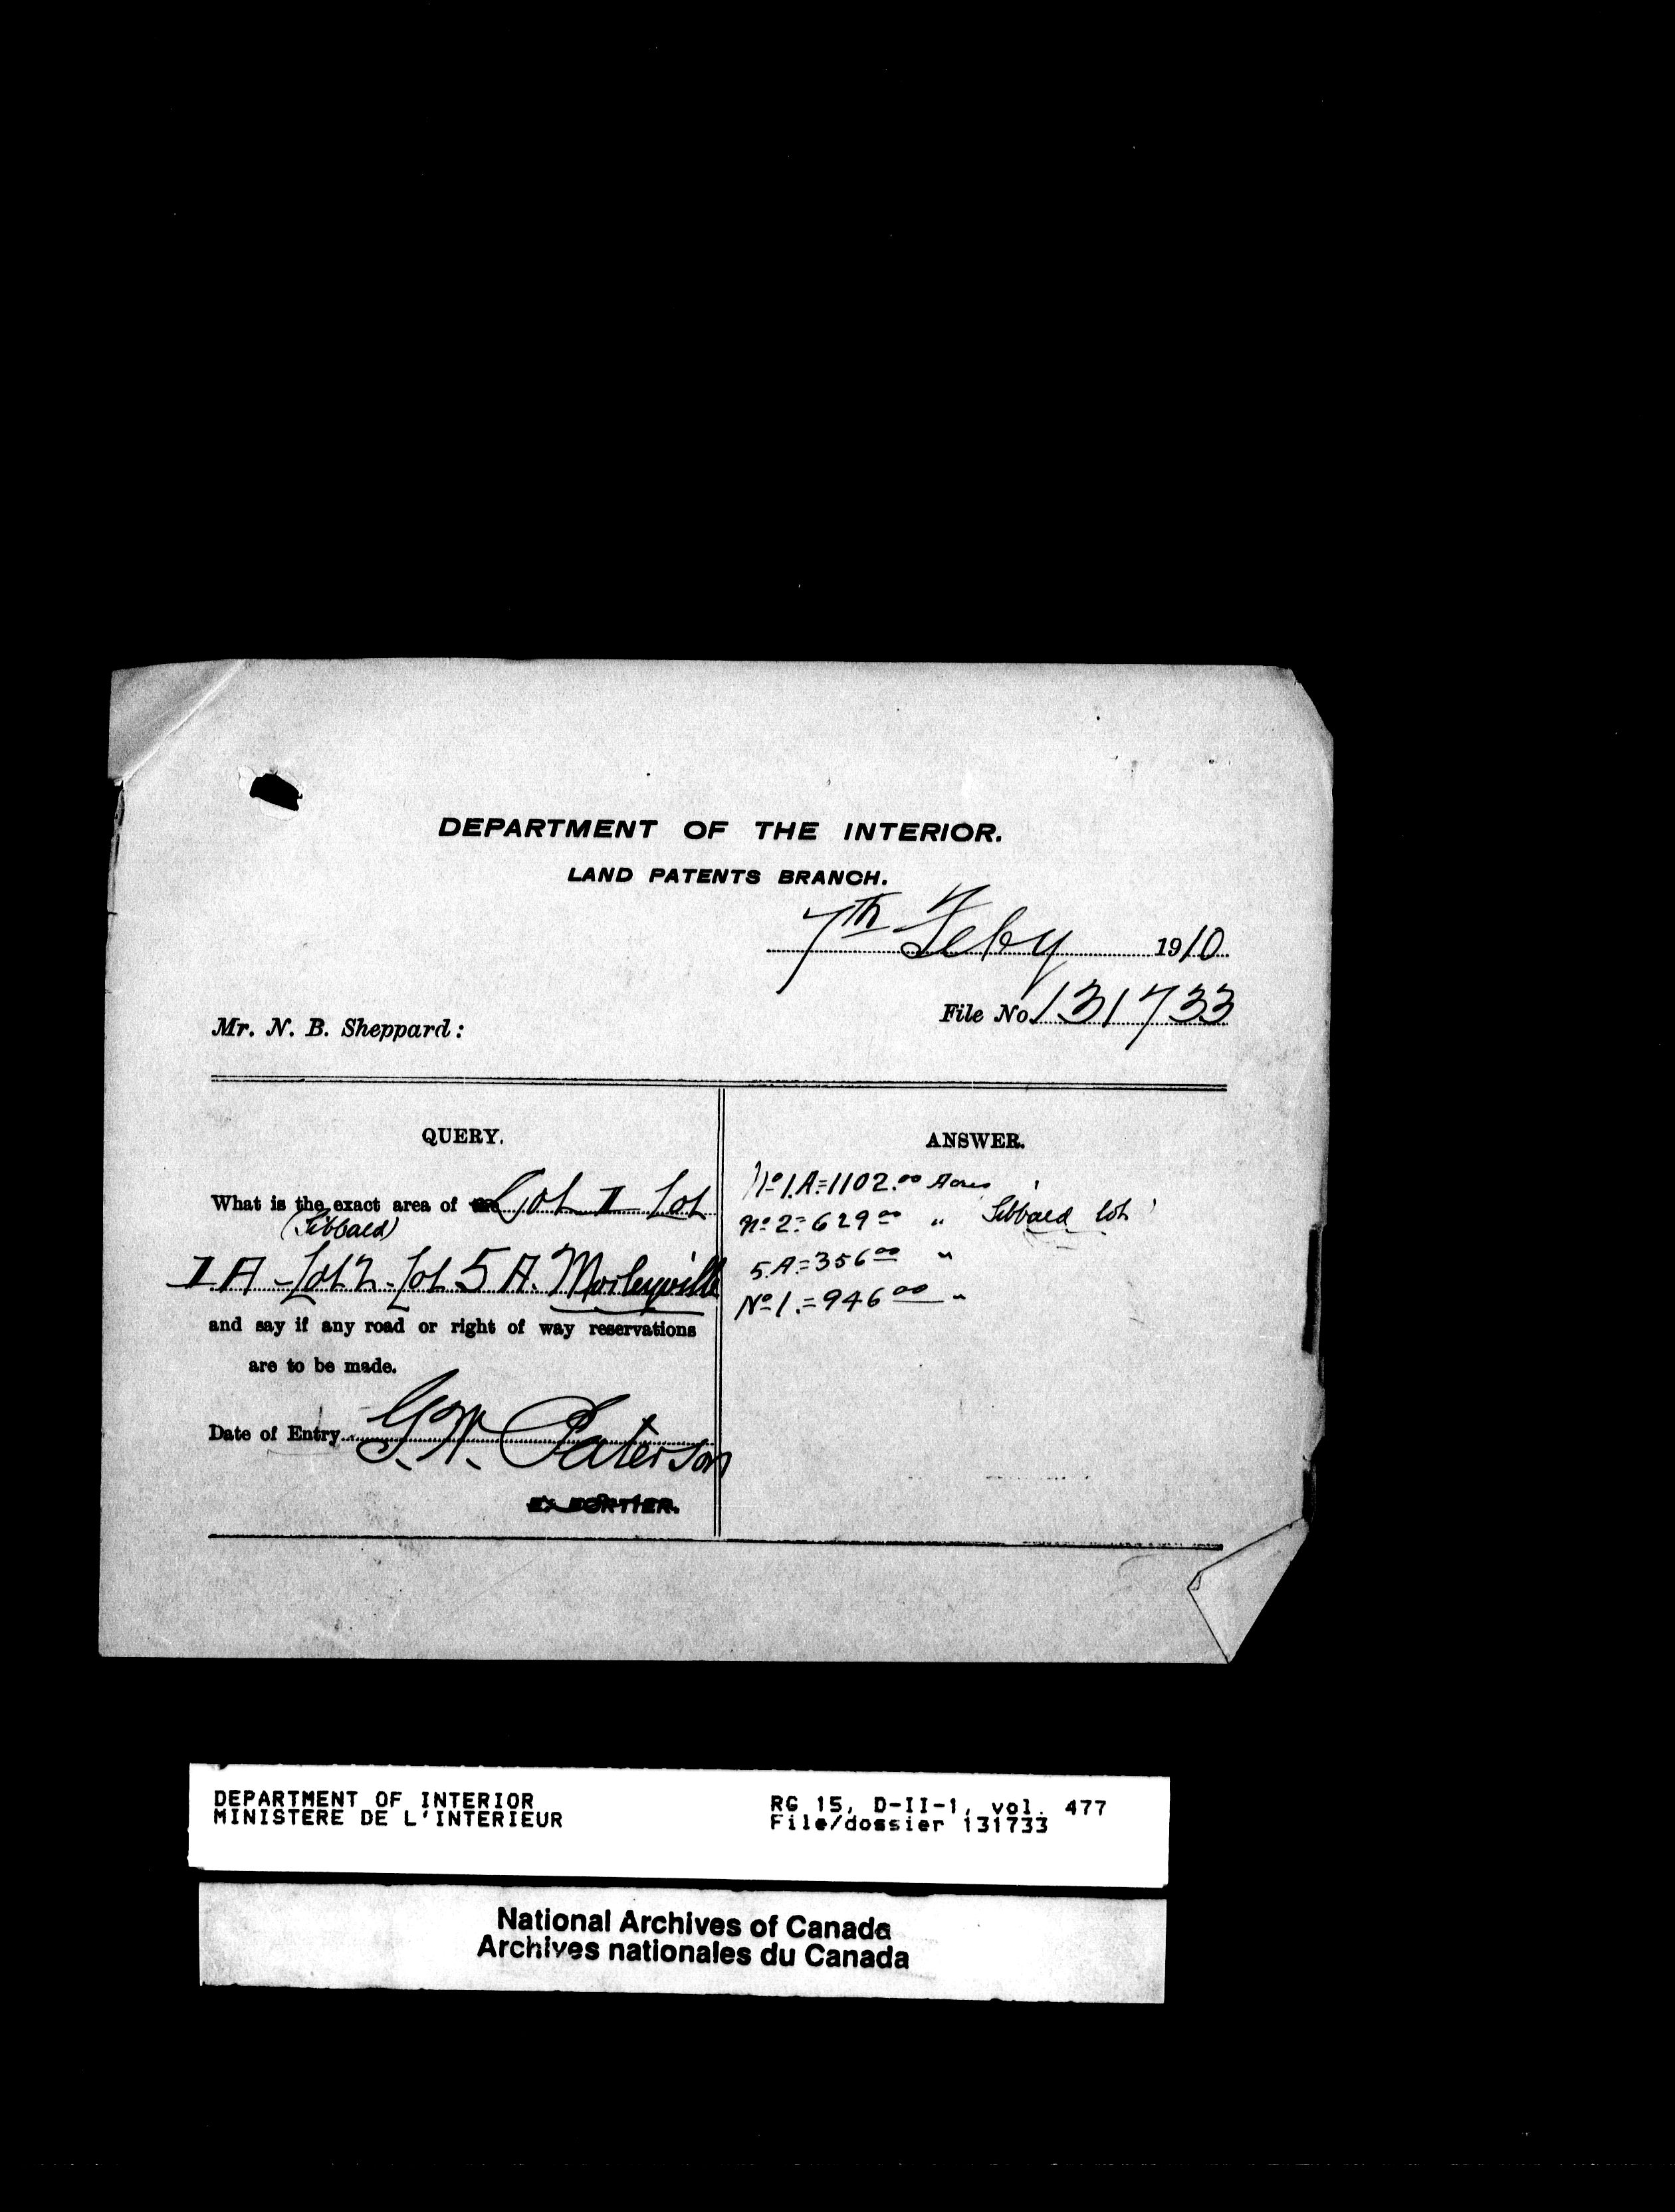 DEPARTMENT OF THE INTERIOR.
LAND PATENTS BRANCH.
7th Feby 1910
File No. 131733
Mr. N. B. Sheppard:
QUERY.
What is the exact area of the Lot 1 Lot
(Sibbald)
1A - Lot 2 - Lot 5 A. Morleyville
and say if any road or right of way reservations
are to be made.
Date of Entry
Paterson
FORTIER.
ANSWER.
No 1.A = 1102.00 Acres
No 2 = 629.00 " Sibbald lot
5.A = 356.00 "
No 1. = 946.00 "
DEPARTMENT OF INTERIOR RG 15, D-II-1, vol. 477
MINISTERE DE L'INTERIEUR File/dossier 131733
National Archives of Canada
Archives nationales du Canada